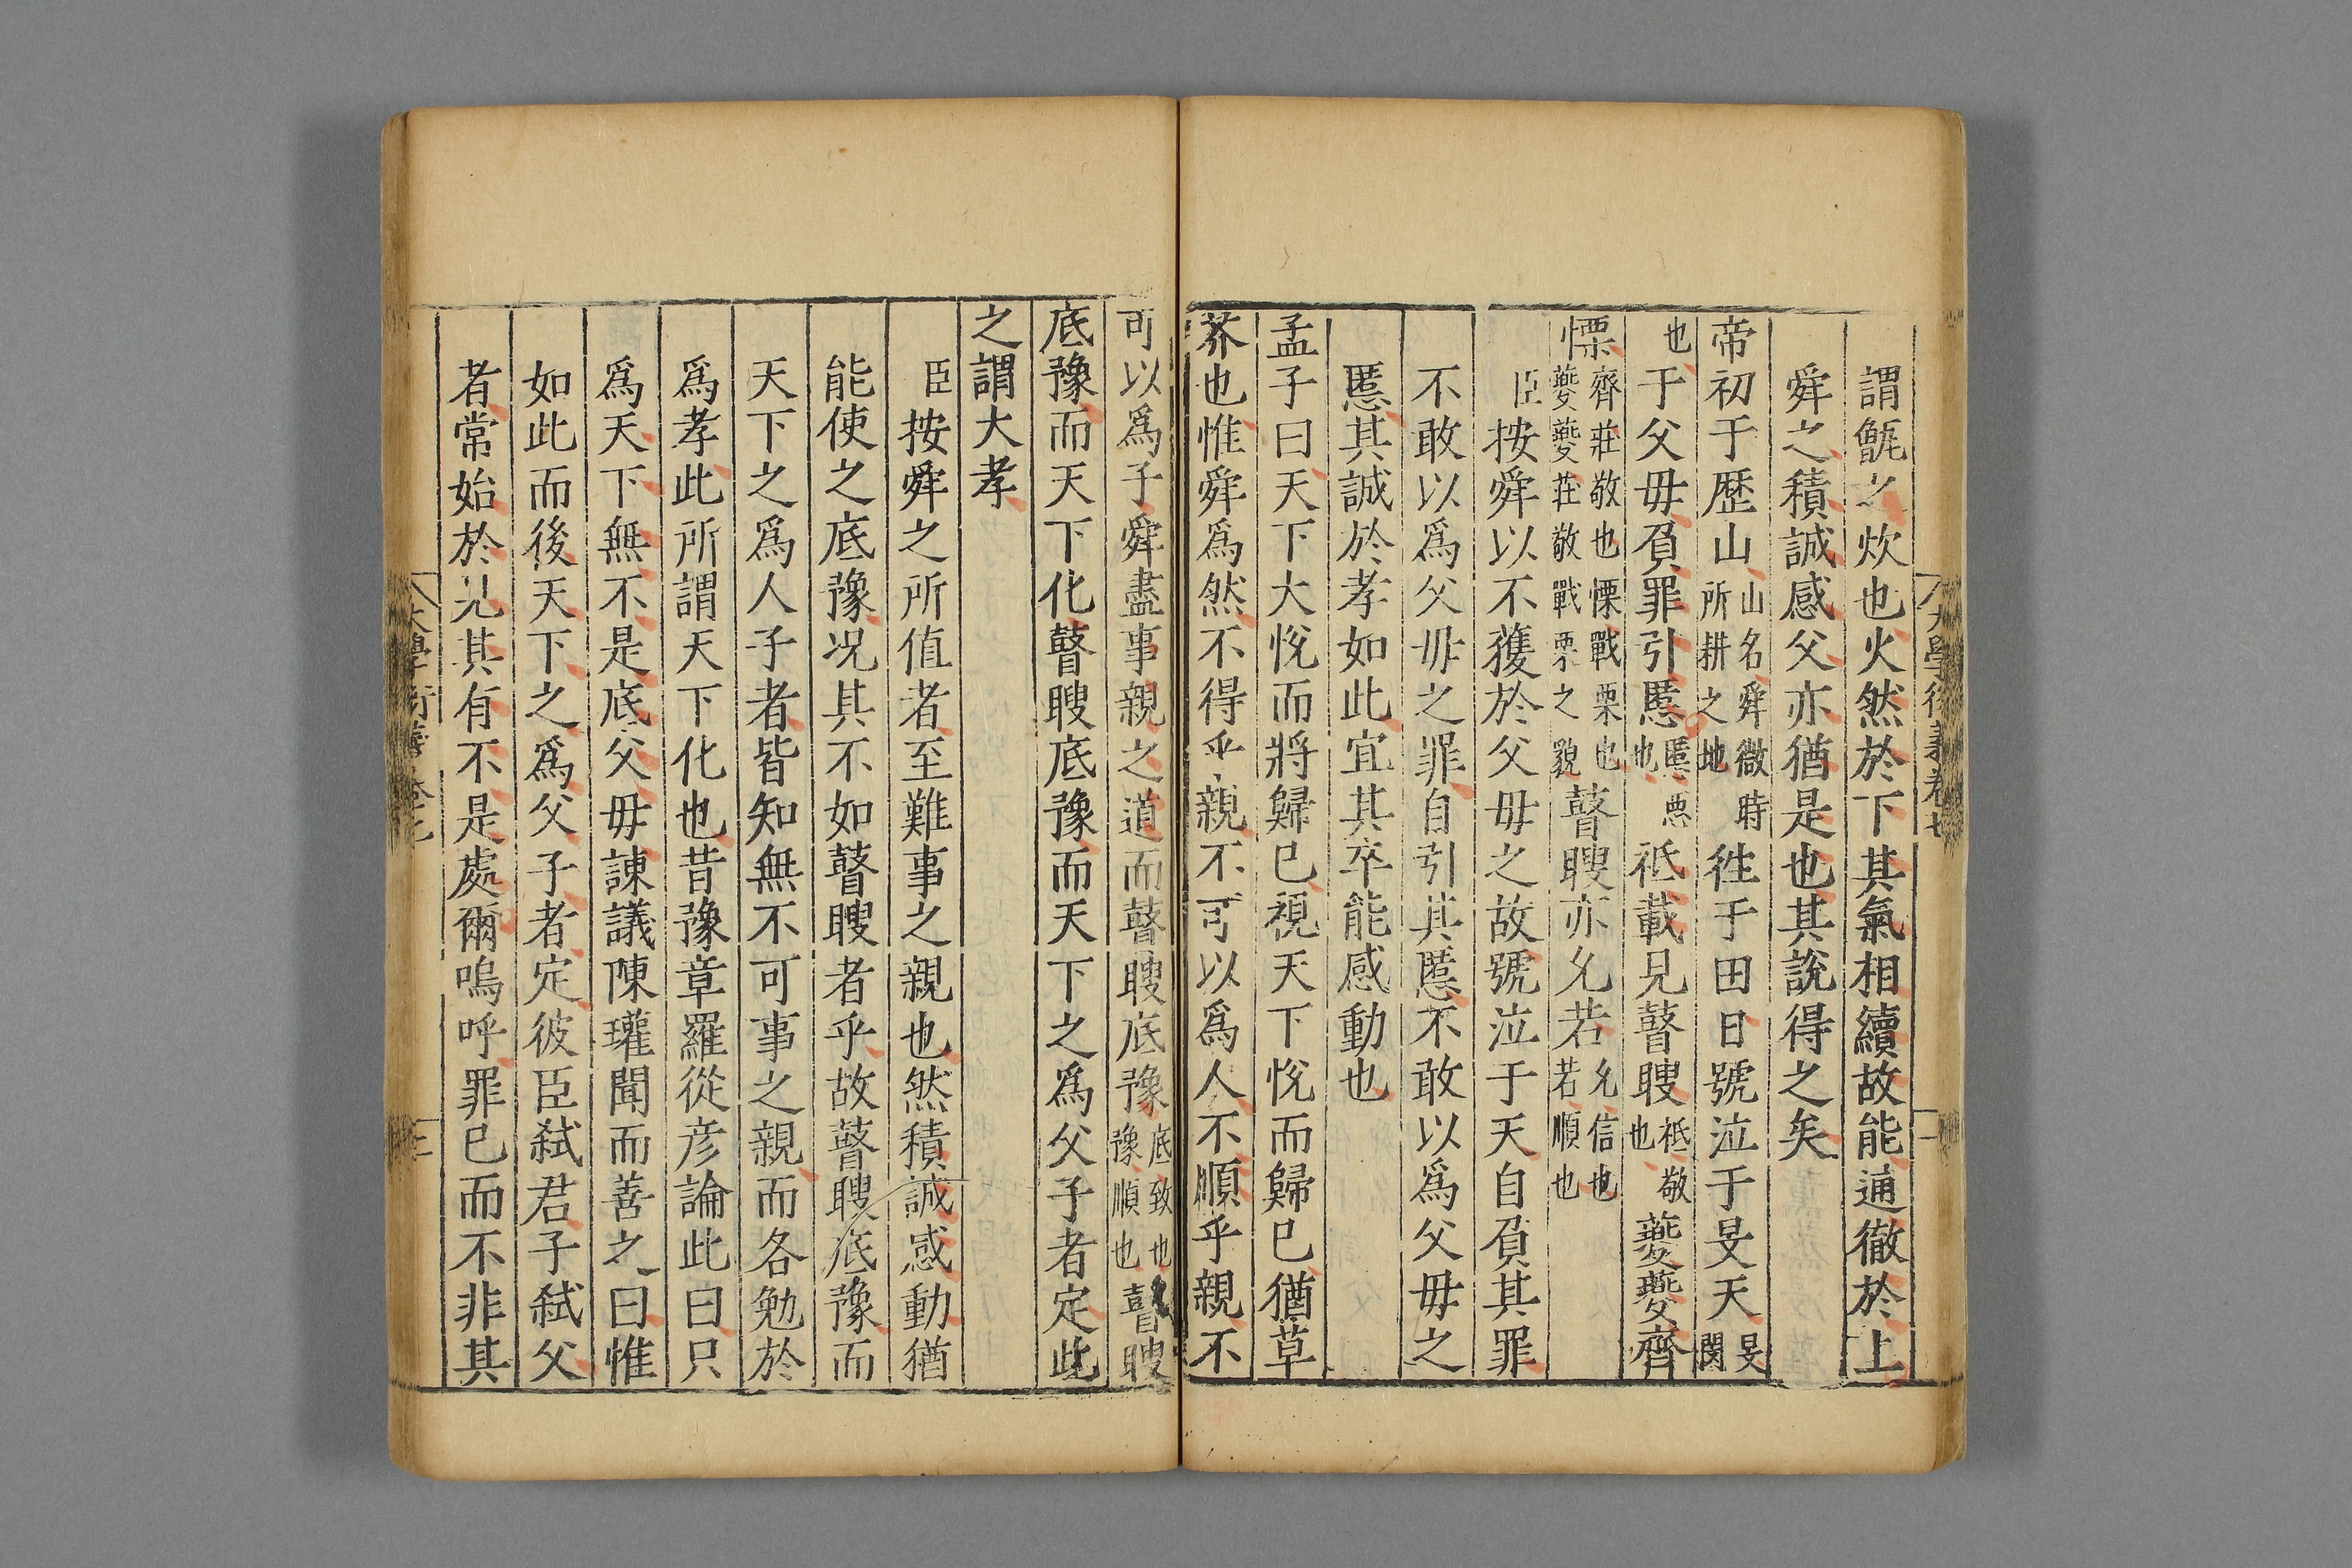 大學衍義卷七
謂甑之炊也火然於下其氣相續故能通徹於上
舜之積誠感父亦猶是也其說得之矣
帝初于歷山山名舜微時所耕之地往于田日號泣于旻天旻閔
也于父毋負罪引慝慝惡也祗載見瞽瞍祗敬也夔夔齊
慄齊莊敬也慄戰栗也夔夔莊敬戰栗之貌瞽瞍亦允若允信也若順也
臣按舜以不獲於父毋之故號泣于天自負其罪
不敢以爲父毋之罪自引其慝不敢以爲父毋之
慝其誠於孝如此宜其卒能感動也
孟子曰天下大悅而將歸已視天下悅而歸已猶草
芥也惟舜爲然不得乎親不可以爲人不順乎親不
可以爲子舜盡事親之道而瞽瞍底豫底致也豫順也瞽瞍
底豫而天下化瞽瞍底豫而天下之爲父子者定此
之謂大孝
臣按舜之所值者至難事之親也然積誠感動猶
能使之底豫况其不如瞽瞍者乎故瞽瞍底豫而
天下之爲人子者皆知無不可事之親而各勉於
爲孝此所謂天下化也昔豫章羅從彦論此曰只
爲天下無不是底父毋諫議陳瓘聞而善之曰惟
如此而後天下之爲父子者定彼臣弑君子弑父
者常始於見其有不是處爾嗚呼罪已而不非其
大學衍義卷七
三